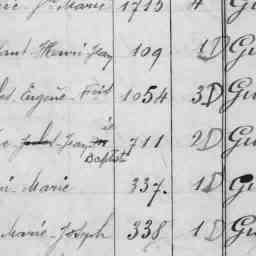 Marie 1715 4 Gu
Henri Jean 109 1D Gu
Eugène 1054 3D Gu
Jean Baptiste 711 2D Gu
Marie 337. 1D Gu
Marie Joseph 338 1D Gu